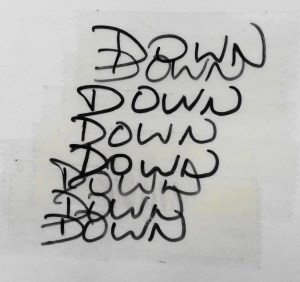 DOWN
DOWN
DOWN
DOWN
DOWN
DOWN
DOWN
DOWN